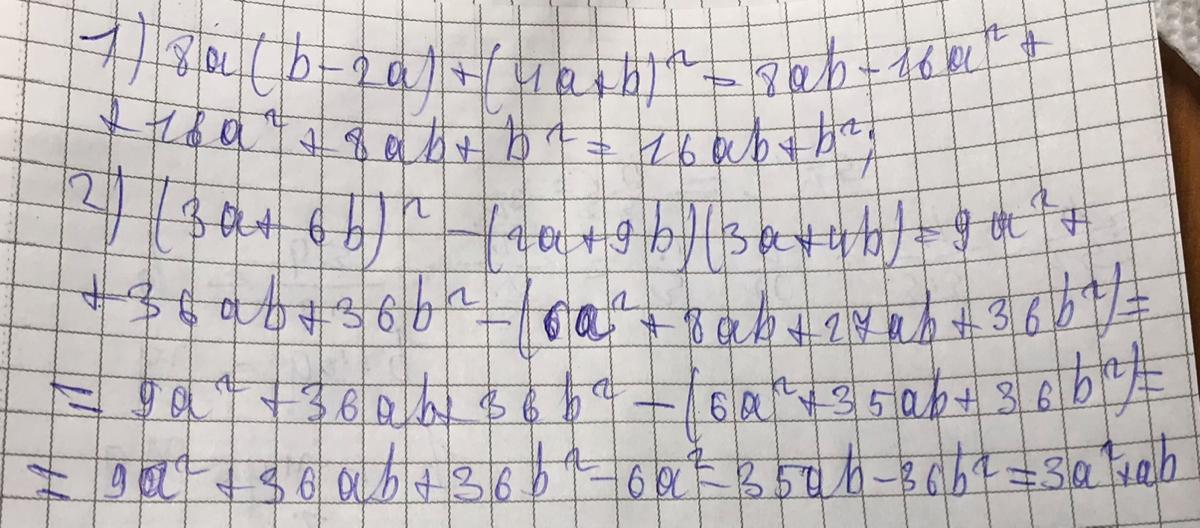 1) 8a(b-2a)+(4a+b)² = 8ab-16a²+
+16a²+8ab+b² = 16ab+b²;
2) (3a+6b)² -(2a+9b)(3a+4b) = 9a²+
+36ab+36b² -(6a²+8ab+27ab+36b²)=
= 9a²+36ab+36b² -(6a²+35ab+36b²)=
= 9a²+36ab+36b²-6a²-35ab-36b² = 3a²+ab